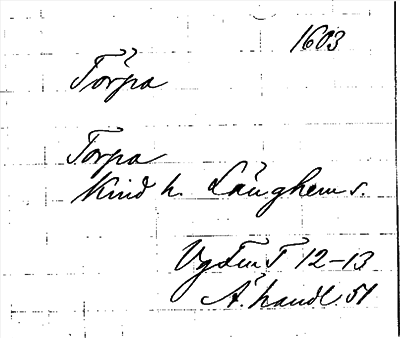 1603
Törpa
Torpa
Kind h. Länghem s.
12-13
Ä. handl. 51